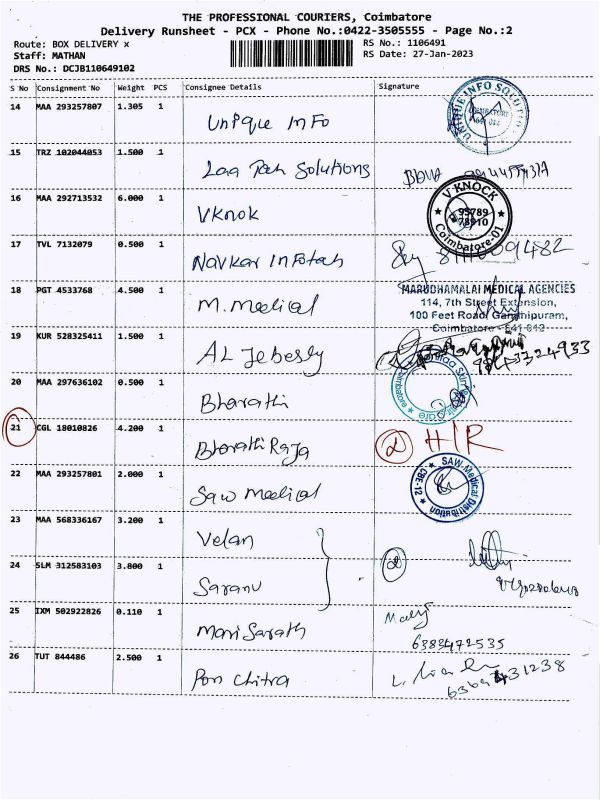 THE PROFESSIONAL COURIERS, Coimbatore
Delivery Runsheet - PCX - Phone No.:0422-3505555 - Page No.:2
Route: BOX DELIVERY x
RS No.: 1106491
Staff: MATHAN
RS Date: 27-Jan-2023
DRS No.: DCJB110649102
S No Consignment No Weight PCS Consignee Details Signature
14 MAA 293257807 1.305 1 Unique Info
UNIQUE INFO SOLUTION
COIMBATORE
15 TRZ 102044053 1.500 1 Laa Tech Solutions
16 MAA 292713532 6.000 1 VKnok
V KNOCK
95789
78910
Coimbatore-01
17 TVL 7132079 0.500 1 Navkar Infotech
18 PGT 4533768 4.500 1 M. Medical
MARUDHAMALAI MEDICAL AGENCIES
114, 7th Street Extension,
100 Feet Road, Gandhipuram,
Coimbatore - 641 012
19 KUR 528325411 1.500 1 AL Jebesly
20 MAA 297636102 0.500 1 Bharathi
21 CGL 18010826 4.200 1 Bharathi Raja
H/R
22 MAA 293257801 2.000 1 Saw Medical
SAW Medical Distribution
CBE-12
23 MAA 568336167 3.200 1 Velan
24 SLM 312583103 3.800 1 Saranu
25 IXM 502922826 0.110 1 Mani Sarath
6383472535
26 TUT 844486 2.500 1 Pon Chitra